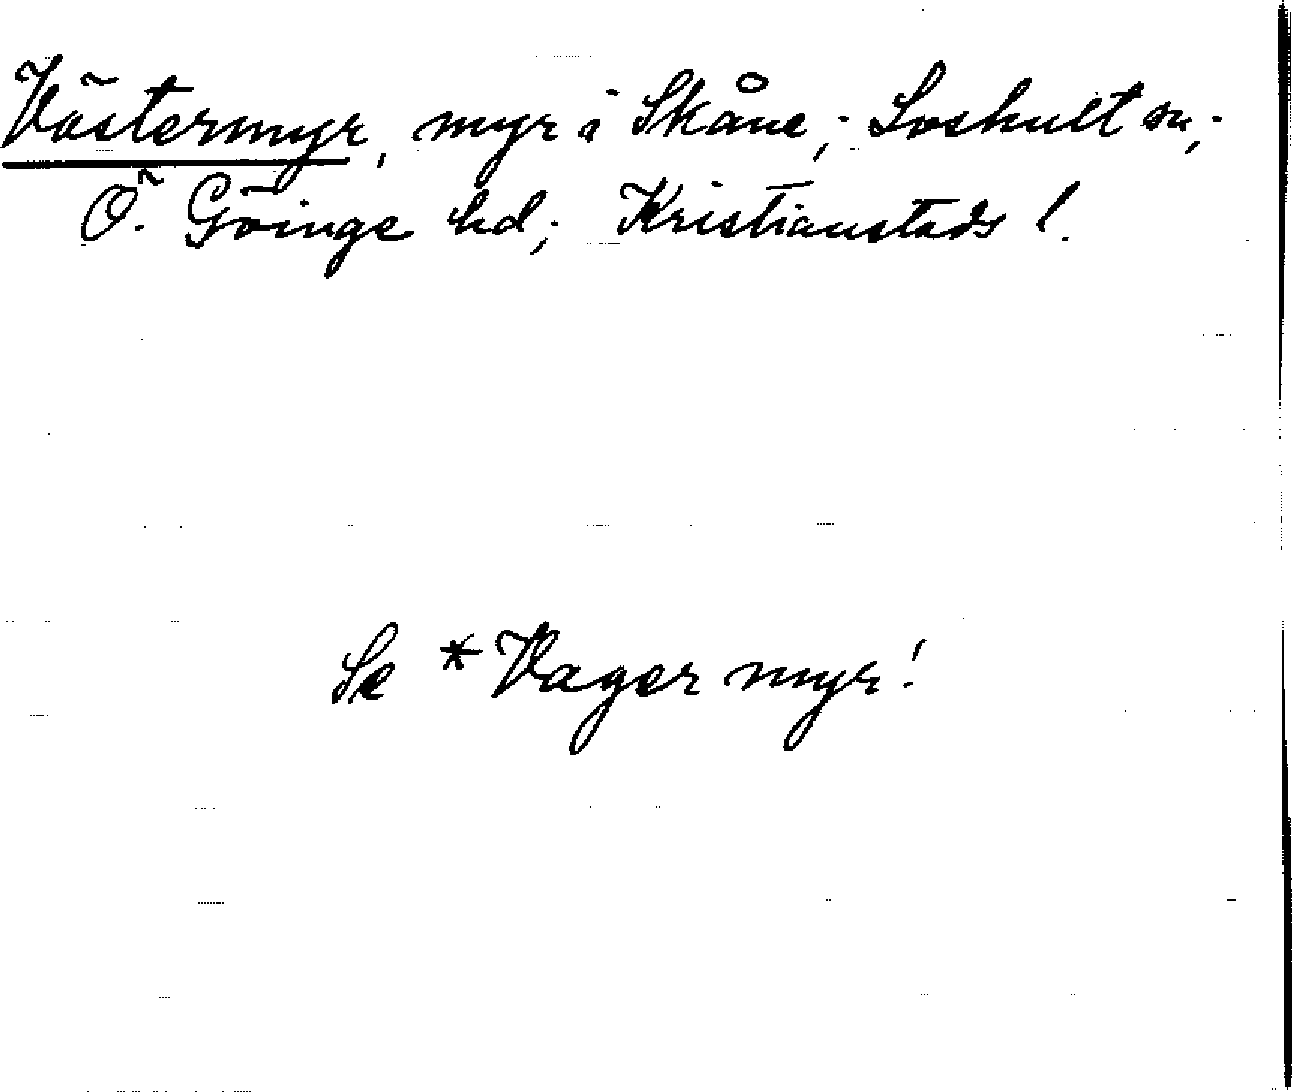 Västermyr, myr i Skåne; Loshult sn;
Ö. Göinge hd; Kristianstads l.
Se *Vager myr!